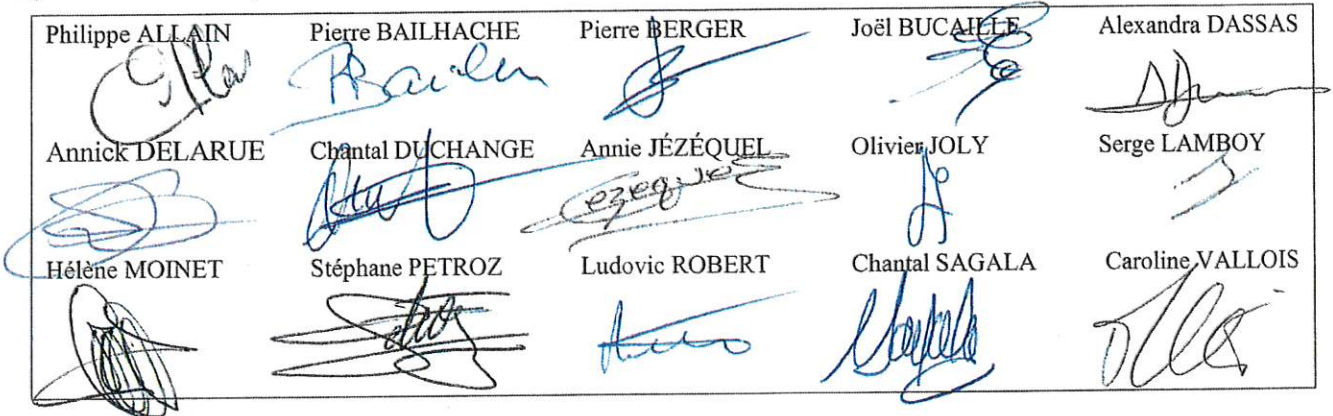 Philippe ALLAIN Pierre BAILHACHE Pierre BERGER Joël BUCAILLE Alexandra DASSAS
Annick DELARUE Chantal DUCHANGE Annie JÉZÉQUEL Olivier JOLY Serge LAMBOY
Hélène MOINET Stéphane PETROZ Ludovic ROBERT Chantal SAGALA Caroline VALLOIS